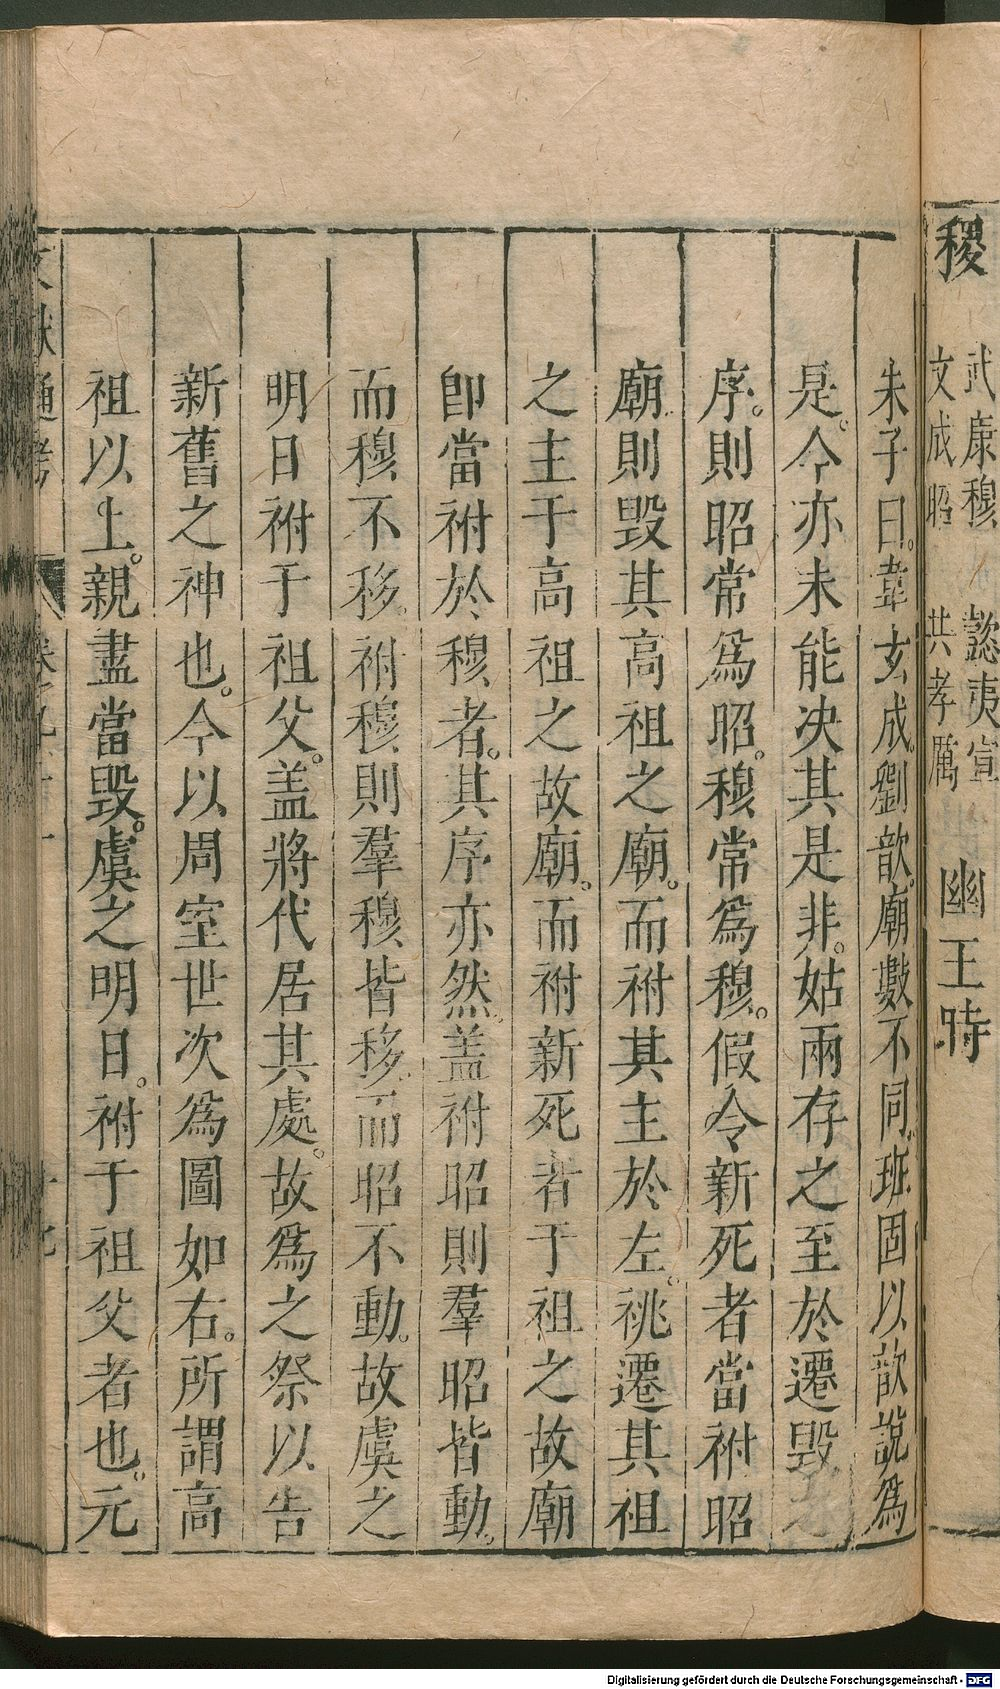 稷
武康穆　懿夷宣
文成昭　共孝厲
幽王時
朱子曰。韋玄成。劉歆。廟數不同。班固以歆說爲
是。今亦未能决其是非。姑兩存之至於遷毀之
序。則昭常爲昭。穆常爲穆。假令新死者當祔昭
廟。則毀其高祖之廟。而祔其主於左。祧遷其祖
之主于高祖之故廟。而祔新死者于祖之故廟
卽當祔於穆者。其序亦然。盖祔昭則羣昭皆動。
而穆不移。祔穆則羣穆皆移。而昭不動。故虞之
明日祔于祖父。盖將代居其處。故爲之祭以告
新舊之神也。今以周室世次爲圖如右。所謂高
祖以上。親盡當毀。虞之明日。祔于祖父者也。元
文獻通考　卷九十一　十九
Digitalisierung gefördert durch die Deutsche Forschungsgemeinschaft - DFG